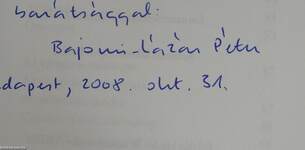 barátsággal:
Bajomi-Lázár Péter
dapest, 2008. okt. 31.